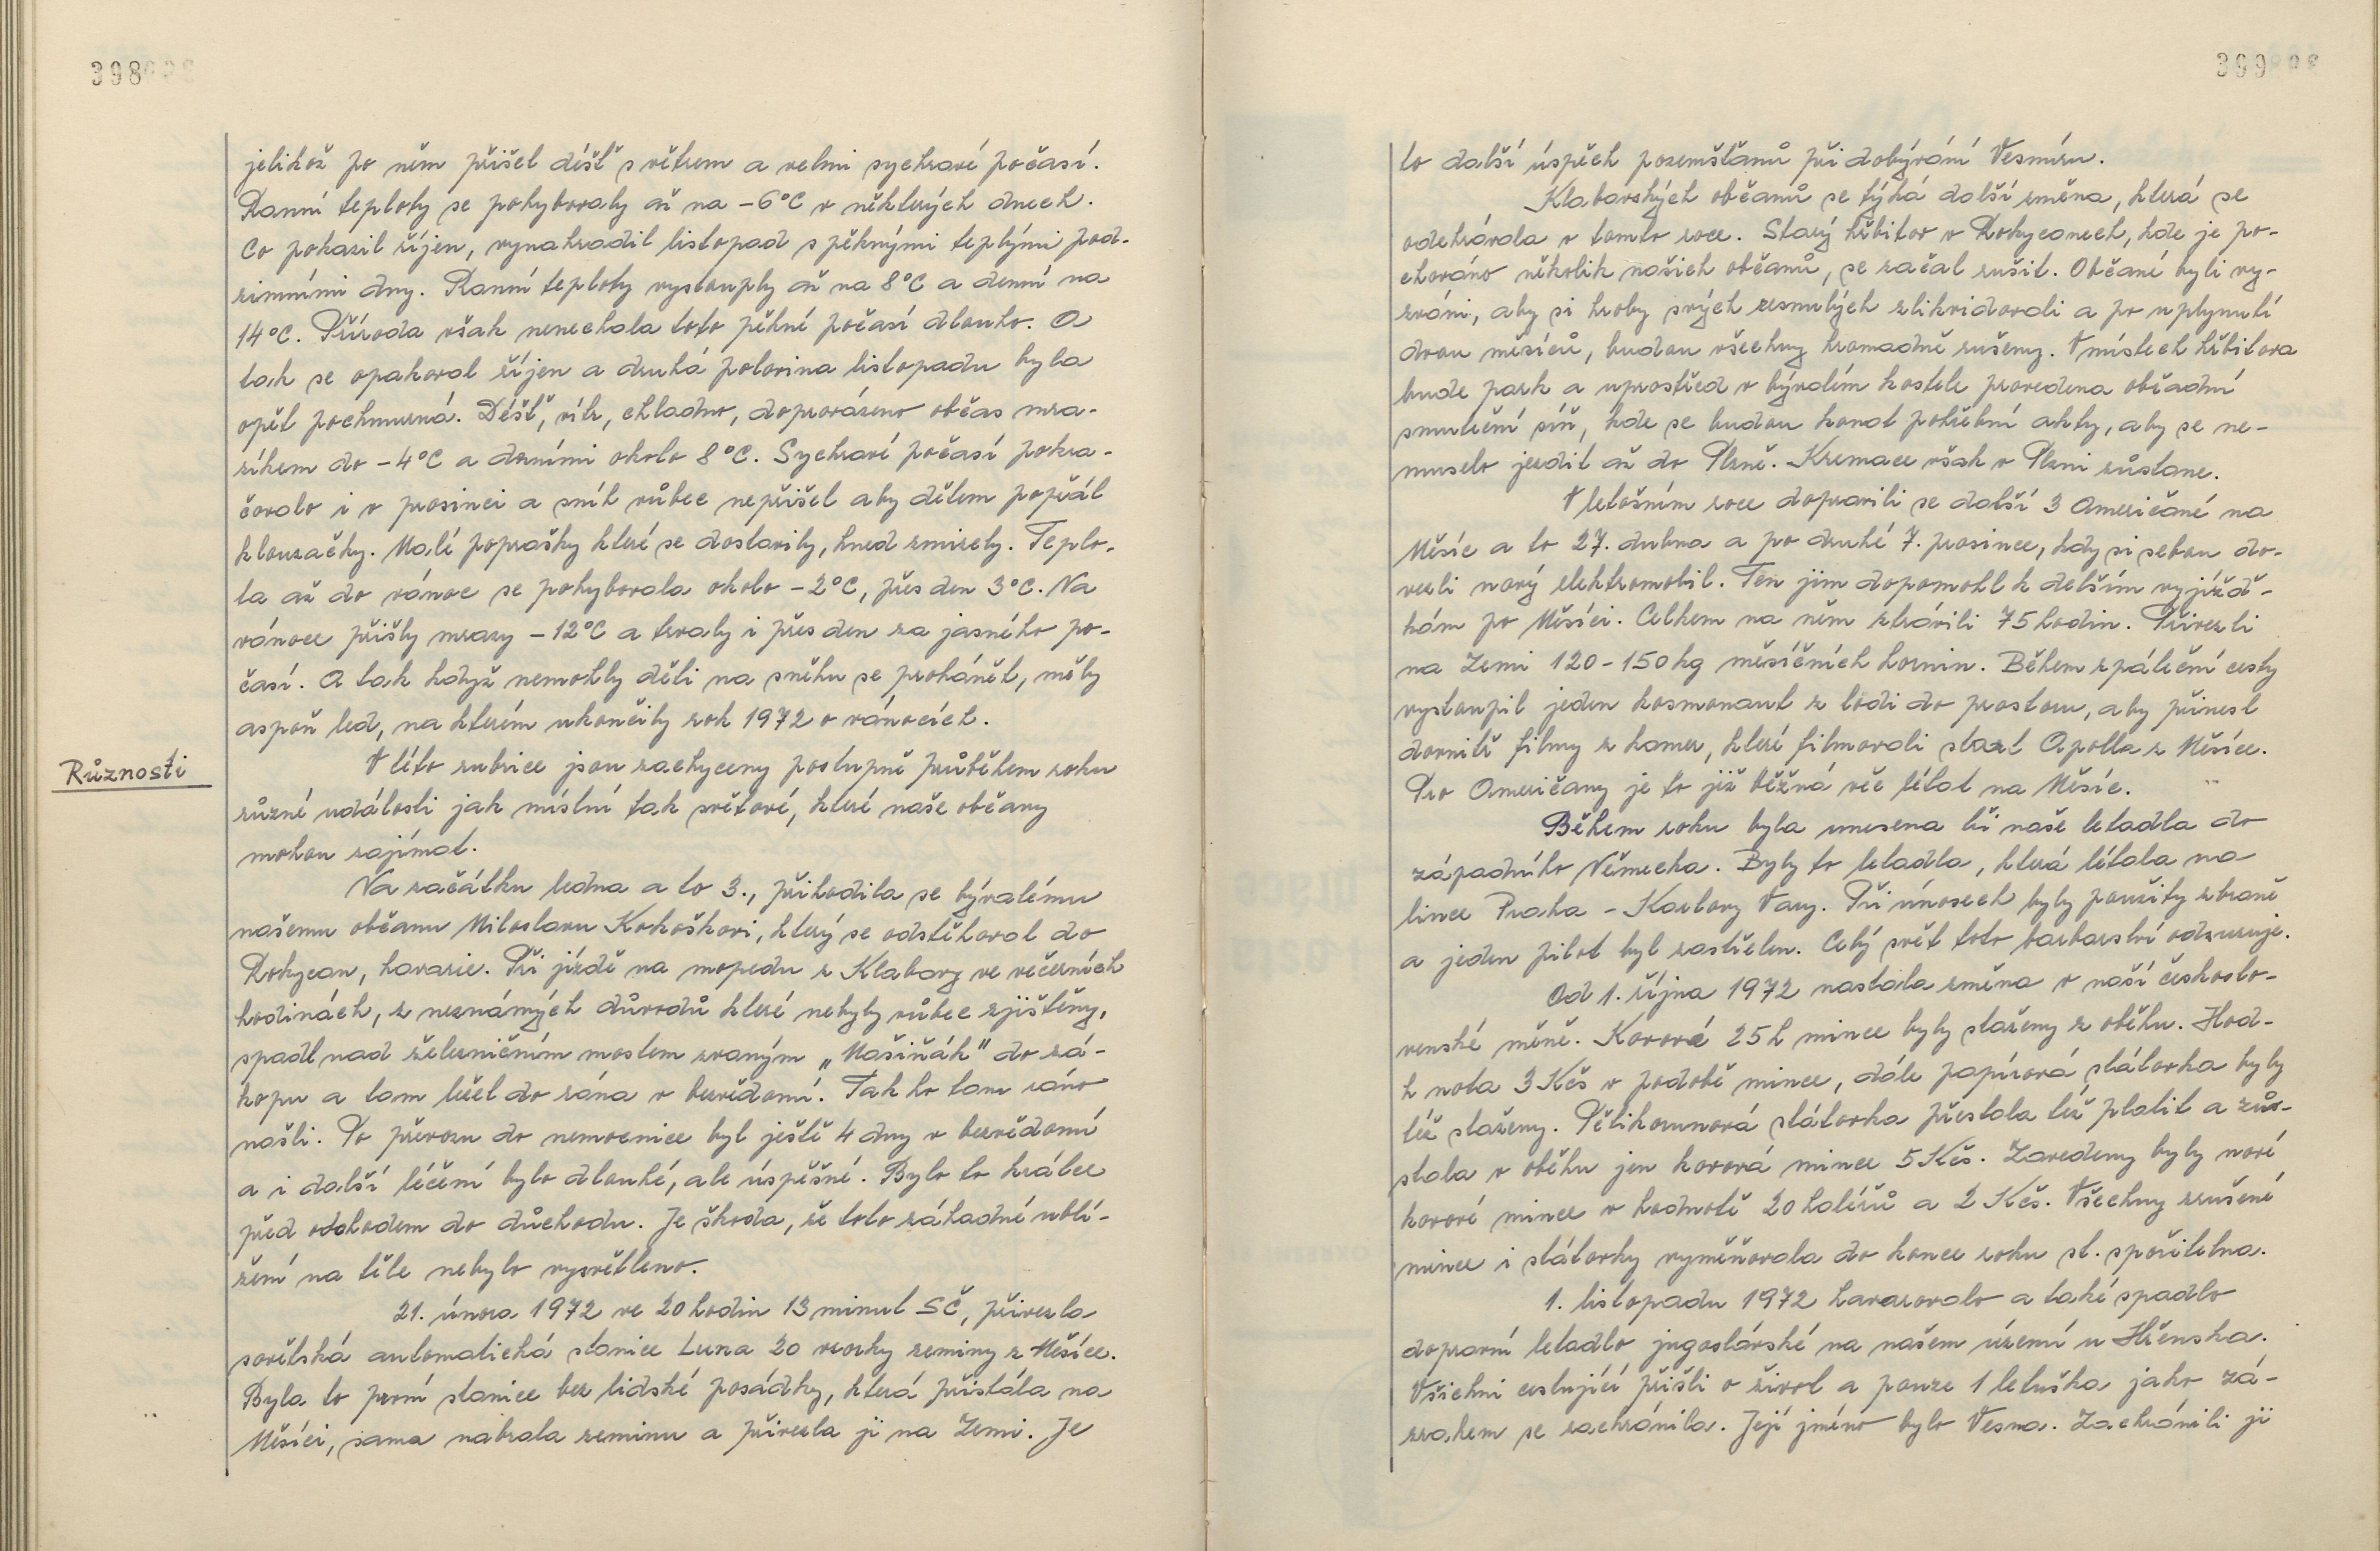 398
jelikož po něm přišel déšť s větrem a velmi sychravé počasí.
Ranní teploty se pohybovaly až na -6°C v některých dnech.
Co pokazil říjen, vynahradil listopad s pěknými teplými pod-
zimními dny. Ranní teploty vystouply až na 8°C a denní na
14°C. Příroda však nenechala toto pěkné počasí dlouho. A
tak se opakoval říjen a druhá polovina listopadu byla
opět pochmurná. Déšť, vítr, chladno, doprovázeno občas mra-
zíkem do -4°C a denními okolo 8°C. Sychravé počasí pokra-
čovalo i v prosinci a sníh vůbec nepřišel aby dětem popřál
klouzačky. Malé poprašky které se dostavily, hned zmizely. Teplo-
ta až do vánoc se pohybovala okolo -2°C, přes den 3°C. Na
vánoce přišly mrazy -12°C a trvaly i přes den za jasného po-
časí. A tak když nemohly děti na sněhu se prohánět, měly
aspoň led, na kterém ukončily rok 1972 o vánocích.
Různosti
V této rubrice jsou zachyceny postupně průběhem roku
různé události jak místní tak světové, které naše občany
mohou zajímat.
Na začátku ledna a to 3., přihodila se bývalému
našemu občanu Miloslavu Kokoškovi, který se odstěhoval do
Rokycan, havarie. Při jízdě na mopedu z Klabavy ve večerních
hodinách, z neznámých důvodů které nebyly vůbec zjištěny,
spadl nad železničním mostem zvaným „Mašiňák" do zá-
kopu a tam ležel do rána v bezvědomí. Tak ho tam ráno
našli. Po převozu do nemocnice byl ještě 4 dny v bezvědomí
a i další léčení bylo dlouhé, ale úspěšné. Bylo to krátce
před odchodem do důchodu. Je škoda, že toto záhadné ublí-
žení na těle nebylo vysvětleno.
21. února 1972 ve 20 hodin 13 minut SČ, přivezla
sovětská automatická stanice Luna 20 vzorky zeminy z Měsíce.
Byla to první stanice bez lidské posádky, která přistála na
Měsíci, sama nabrala zeminu a přivezla ji na Zemi. Je
399
to další úspěch pozemšťanů při dobývání Vesmíru.
Klabavských občanů se týká další změna, která se
odehrávala v tomto roce. Starý hřbitov v Rokycanech, kde je po-
chováno několik našich občanů, se začal rušit. Občané byli vy-
zváni, aby si hroby svých zesnulých zlikvidovali a po uplynutí
dvou měsíců, budou všechny hromadně rušeny. V místech hřbitova
bude park a uprostřed v bývalém kostele provedena obřadní
smuteční síň, kde se budou konat pohřební akty, aby se ne-
muselo jezdit až do Plzně. Kremace však v Plzni zůstane.
V letošním roce dopravili se další 3 Američané na
Měsíc a to 27. dubna a po druhé 7. prosince, kdy si sebou do-
vezli nový elektromobil. Ten jim dopomohl k delším vyjížď-
kám po Měsíci. Celkem na něm ztrávili 75 hodin. Přivezli
na Zemi 120-150 kg měsíčních hornin. Během zpáteční cesty
vystoupil jeden kosmonaut z lodi do prostoru, aby přinesl
dovnitř filmy z kamer, které filmovali start Apolla z Měsíce.
Pro Američany je to již běžná věc létat na Měsíc.
Během roku byla unesena tři naše letadla do
západního Německa. Byly to letadla, která létala na
lince Praha - Karlovy Vary. Při únosech byly použity zbraně
a jeden pilot byl zastřelen. Celý svět toto barbarství odsuzuje.
Od 1. října 1972 nastala změna v naší českoslo-
venské měně. Kovové 25 h mince byly staženy z oběhu. Hod-
h nota 3 Kčs v podobě mince, dále papírová státovka byly
též staženy. Pětikorunová státovka přestala též platit a zůs-
tala v oběhu jen kovová mince 5 Kčs. Zavedeny byly nové
kovové mince v hodnotě 20 haléřů a 2 Kčs. Všechny zrušené
mince i státovky vyměňovala do konce roku st. spořitelna.
1. listopadu 1972 havarovalo a také spadlo
dopravní letadlo jugoslávské na našem území u Hřenska.
Všichni cestující přišli o život a pouze 1 letuška jako zá-
zrakem se zachránila. Její jméno bylo Vesna. Zachránili ji